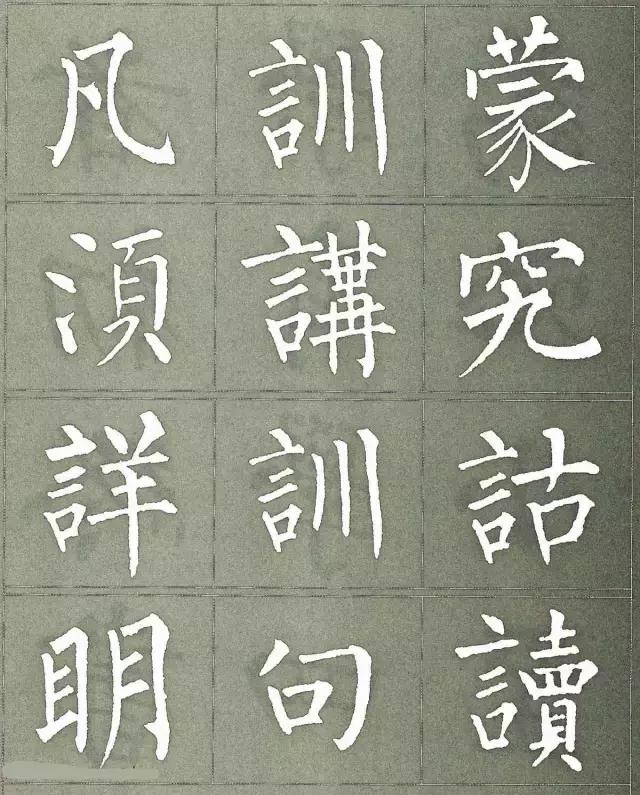 凡訓蒙
須講究
詳訓詁
明句讀